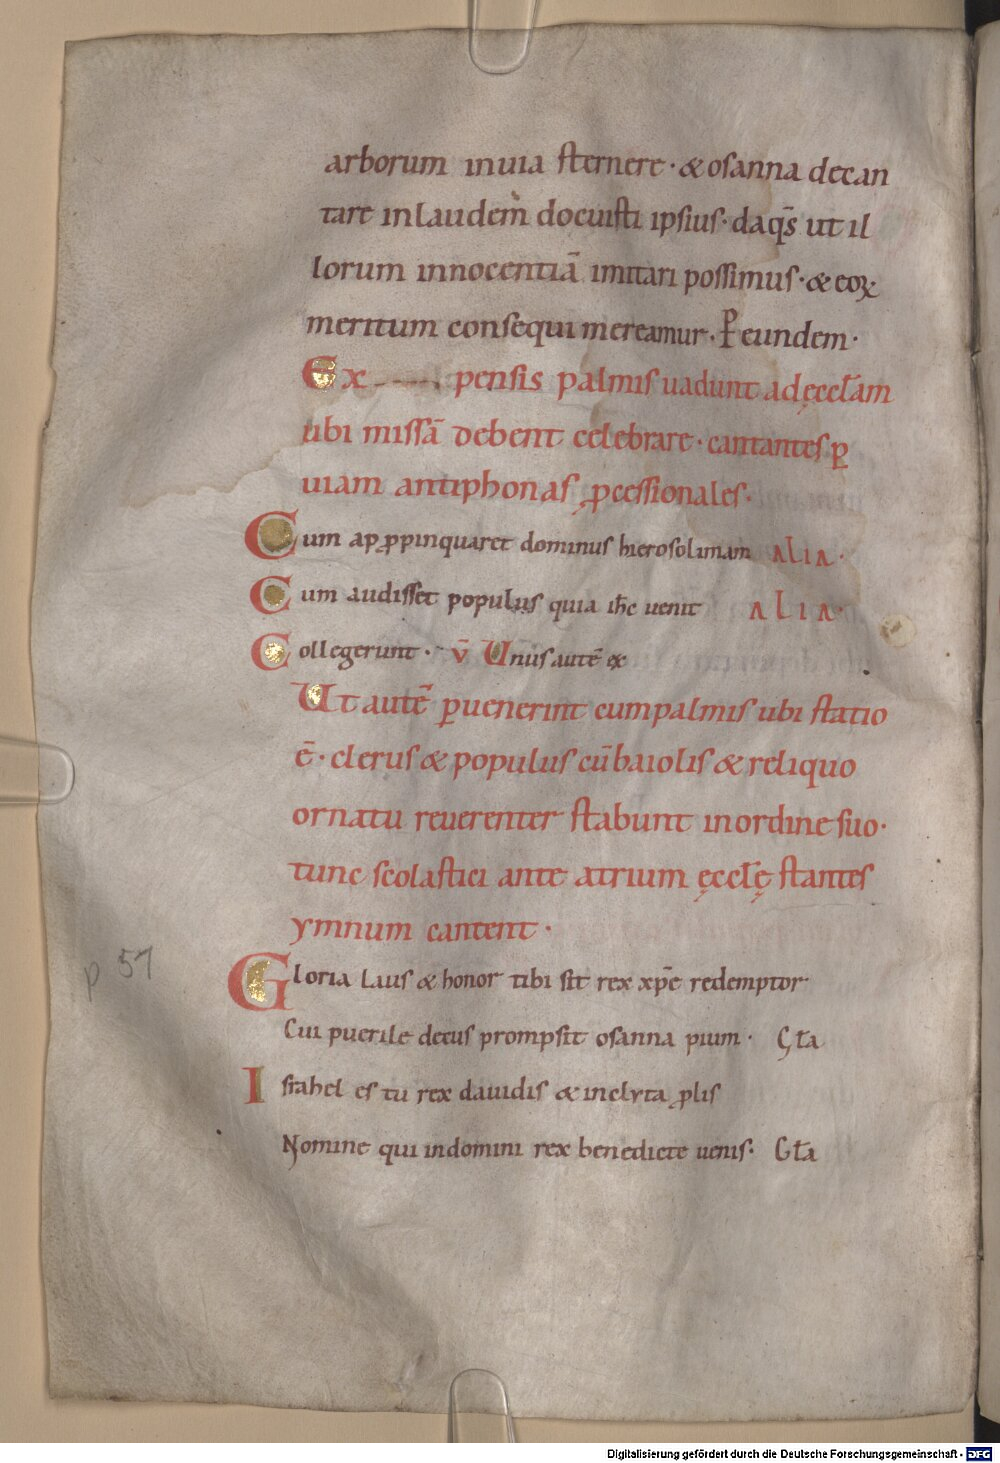 arborum inuia sternere · & osanna decan
tare inlaudem docuisti ipsius · daq̄s ut il
lorum innocentiā imitari possimus · & eoꝝ
meritum consequi mereamur · P̄ eundem ·
Ex---- pensis palmis uadunt adęccl̄am
ubi missā debent celebrare · cantantes ꝑ
uiam antiphonas ꝓcessionales ·
Cum apꝓpinquaret dominus hierosolimam ALIA ·
Cum audisset populus quia ih̄c uenit ALIA ·
Collegerunt · v̄ Unus autē ex
Ut autē ꝑuenerint cumpalmis ubi statio
ē · clerus & populus cū baiolis & reliquo
ornatu reuerenter stabunt inordine suo ·
tunc scolastici ante atrium ęccl̄ę stantes
ymnum cantent ·
Gloria laus & honor tibi sit rex xp̄e redemptor
Cui puerile decus prompsit osanna pium · Gl̄a
Israhel es tu rex dauidis & inclyta ꝓlis
Nomine qui indomini rex benedicte uenis · Gl̄a
p 57
Digitalisierung gefördert durch die Deutsche Forschungsgemeinschaft - DFG